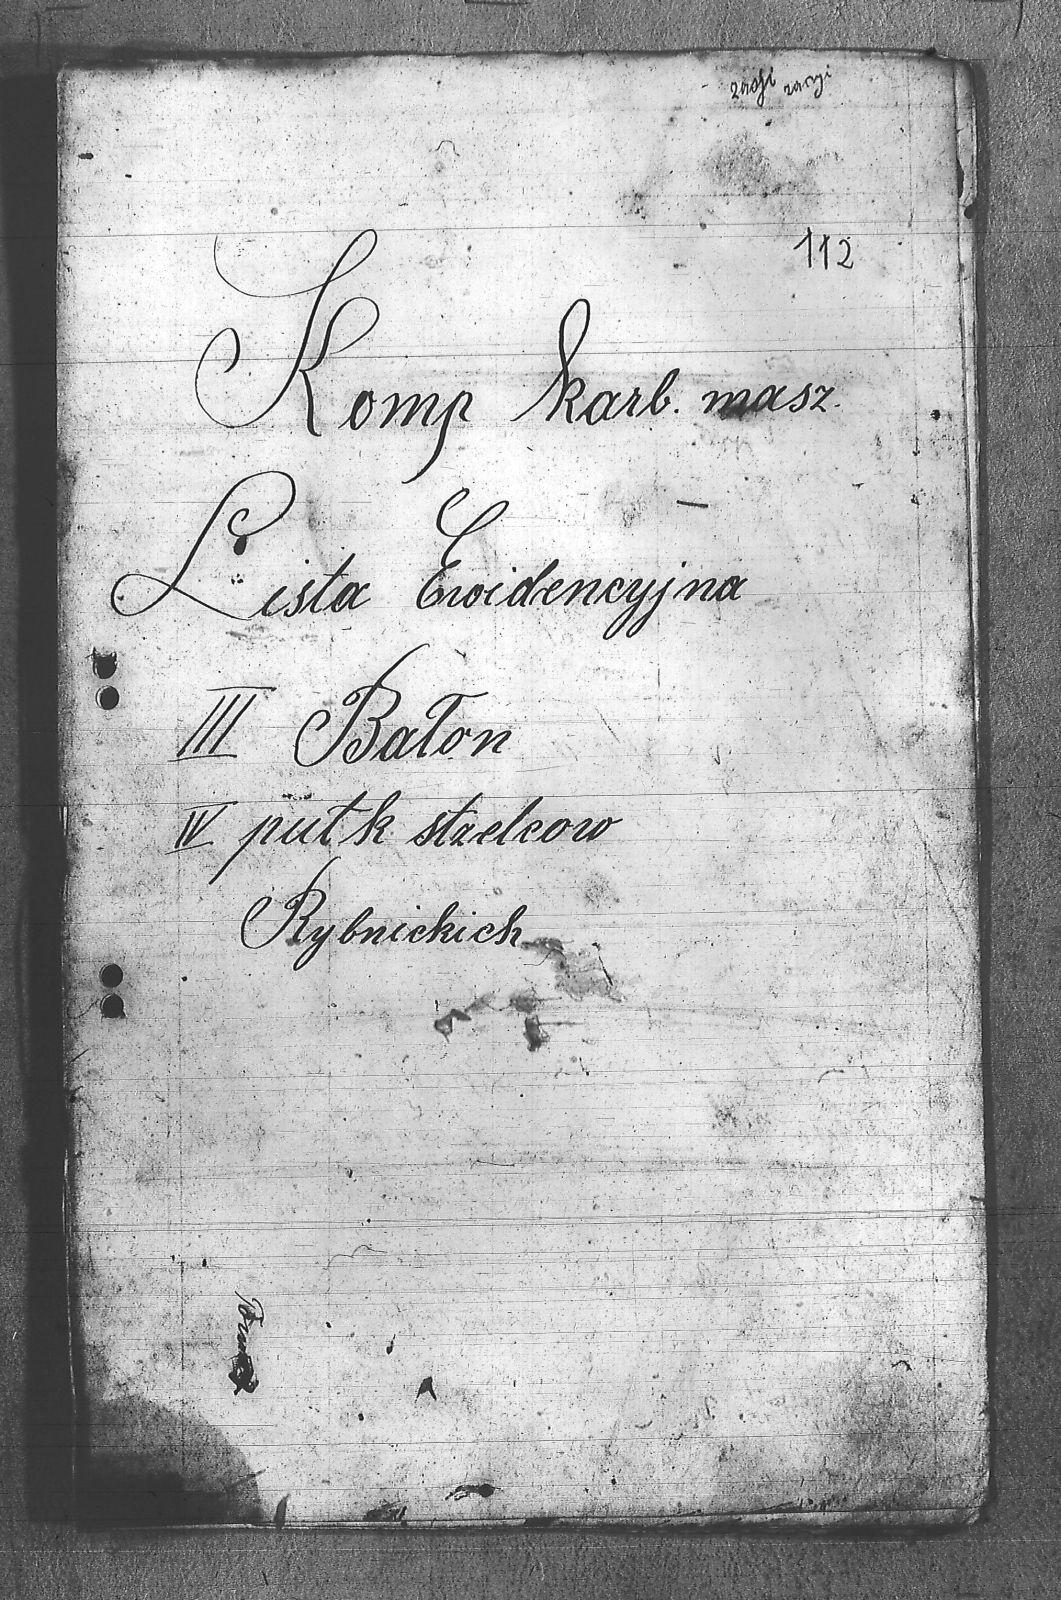 112
Komp karb. masz.
Lista Ewidencyjna
III Bałon
IV pułk stzelcow
Rybnickich